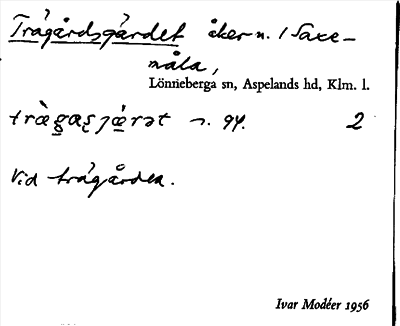 Trägårdsgärdet åker n. / Saxe-
måla,
Lönneberga sn, Aspelands hd, Klm. l.
n. 94. 2
Vid trägården.
Ivar Modéer 1956